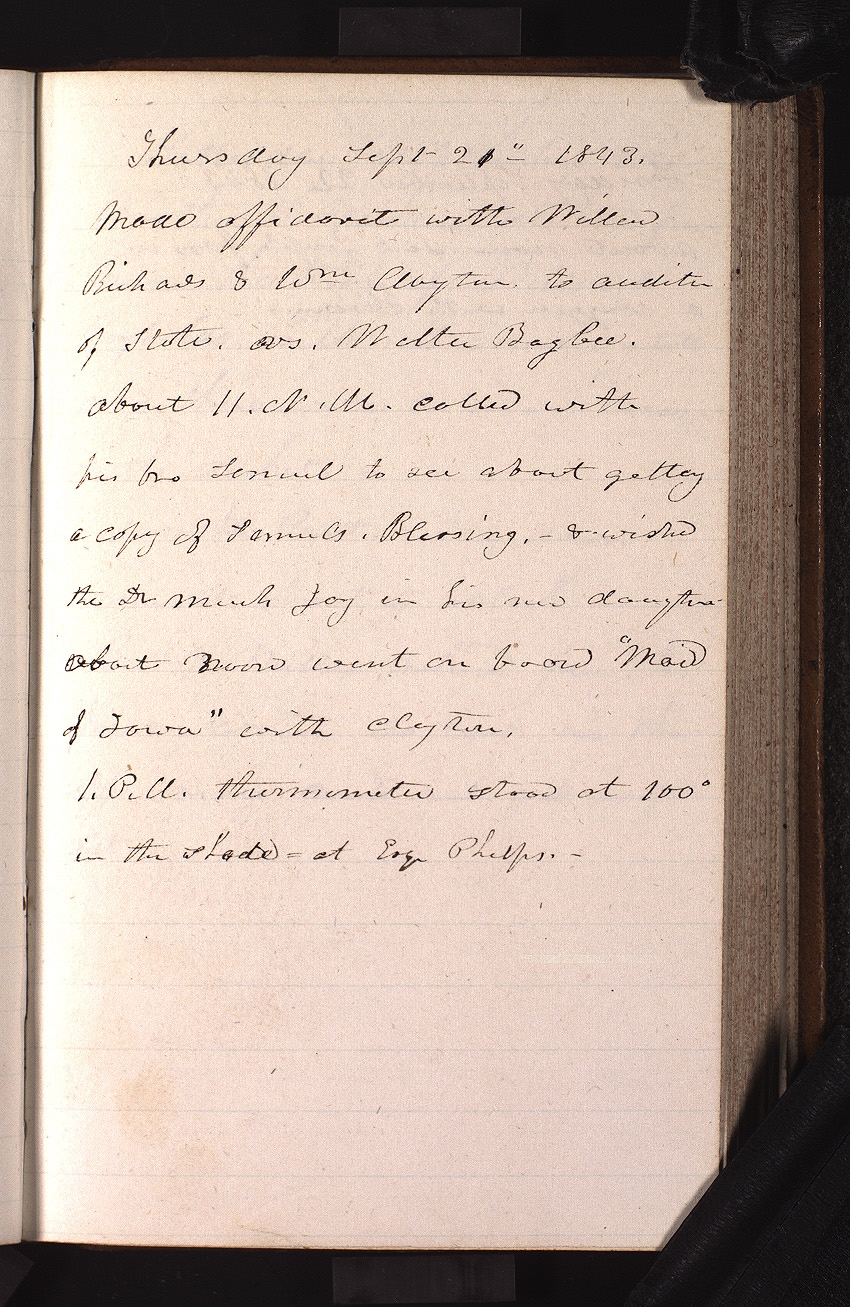 Thursday Sept 21" 1843.
Made affidavit with Willard
Richards & Wm Clayton. to auditor
of State. vs. Walter Bagbee.
about 11. A.M. called with
his bro Samuel to see about getting
a copy of Samuels. Blessing. - & wished
the Dr much Joy in his new daughter
about noon went on board "Maid
of Iowa" with Clayton.
1. P.M. thermometer stood at 100°
in the shade = at Esqr Phelps. -